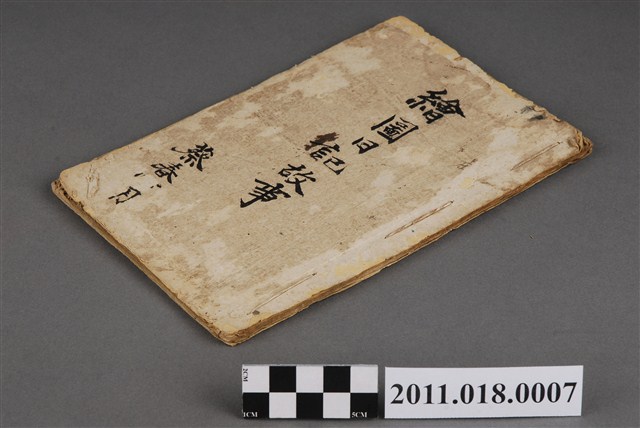 繪圖日記故事
蔡春八月
2CM
1CM
5CM
2011.018.0007